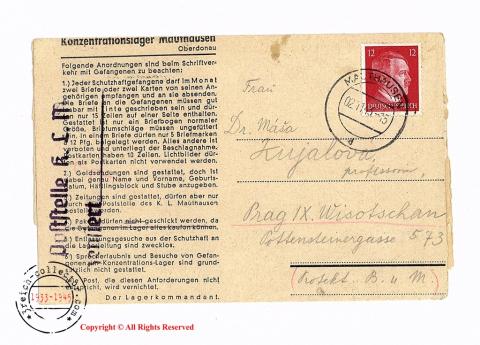 Konzentrationslager Mauthausen
Oberdonau
Folgende Anordnungen sind beim Schriftver-
kehr mit Gefangenen zu beachten:
1.) Jeder Schutzhaftgefangene darf im Monat
zwei Briefe oder zwei Karten von seinen Ange-
hörigen empfangen und an sie absenden.
Die Briefe an die Gefangenen müssen gut
mit Tinte geschrieben sein und dür-
nur 15 Zeilen auf einer Seite enthalten.
Gestattet ist nur ein Briefbogen normaler
Größe. Briefumschläge müssen ungefüttert
In einem Briefe dürfen nur 5 Briefmarken
12 Pfg. beigelegt werden. Alles andere ist
verboten und unterliegt der Beschlagnahme.
Postkarten haben 10 Zeilen. Lichtbilder dür-
als Postkarten nicht verwendet werden.
2.) Geldsendungen sind gestattet, doch ist
dabei genau Name und Vorname, Geburts-
datum, Häftlingsblock und Stube anzugeben.
3.) Zeitungen sind gestattet, dürfen aber nur
Poststelle des K. L. Mauthausen
bestellt werden.
Pakete dürfen nicht geschickt werden, da
die Gefangenen im Lager alles kaufen können.
Entlassungsgesuche aus der Schutzhaft an
die Lagerleitung sind zwecklos.
6.) Sprecherlaubnis und Besuche von Gefan-
genen im Konzentrations-Lager sind grund-
sätzlich nicht gestattet.
Post, die diesen Anforderungen nicht
wird vernichtet.
Der Lagerkommandant.
Poststelle K. L. M.
12
DEUTSCHES REICH
MAUTHAUSEN
Frau
Dr. Máša
professorin,
Prag IX. Wisotschan
Gottensteinergasse 573
(Protekt. B. u M.)
3reich-collector.com
1933-1945
Copyright © All Rights Reserved